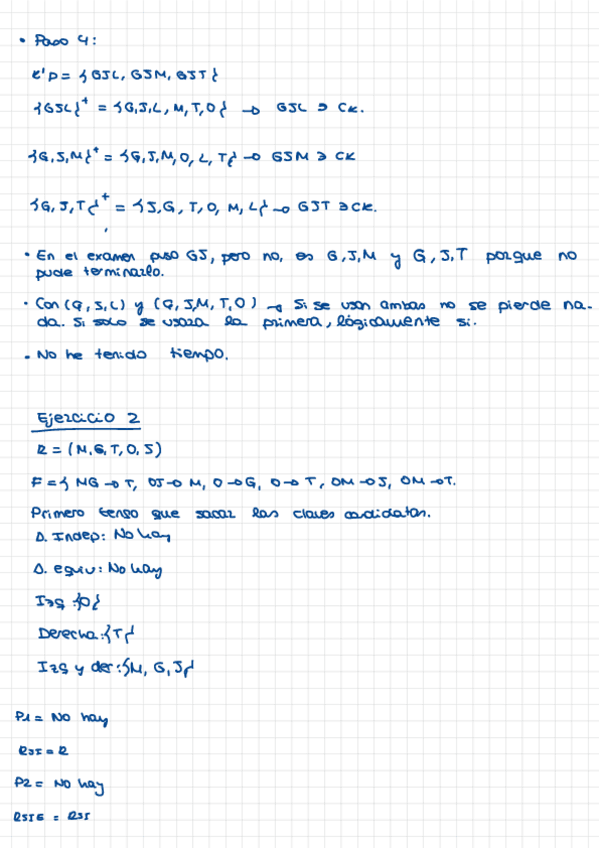 • Paso 4:
K'p = {GJL, GJM, GJT}
{GJL}⁺ = {G,J,L, M,T,O} → GJL ∋ CK.
{G,J,M}⁺ = {G,J,M,O,L,T} → GJM ∋ CK
{G,J,T}⁺ = {J,G,T,O,M,L} → GJT ∋ CK.
• En el examen puso GJ, pero no, es G,J,M y G,J,T porque no
pude terminarlo.
• Con (G,J,L) y (G,J,M,T,O) → Si se usan ambas no se pierde na-
da. Si solo se usara la primera, lógicamente si.
• No he tenido tiempo.
Ejercicio 2
R = (M,G,T,O,J)
F = { MG → T, OJ → M, O → G, O → T, OM → J, OM → T.
Primero tengo que sacar las claves candidatas.
D. Indep: No hay
D. equiv: No hay
Izq: {O}
Derecha: {T}
Izq y der: {M, G, J}
P1 = No hay
RSI = R
P2 = No hay
RSIE = RSI